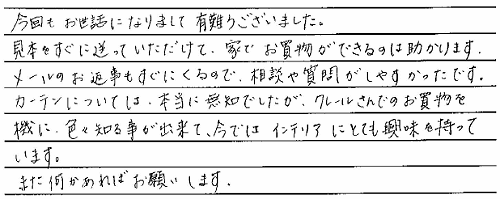 今回もお世話になりまして有難うございました。
見本をすぐに送っていただけて、家でお買物ができるのは助かります。
メールのお返事もすぐにくるので、相談や質問がしやすかったです。
カーテンについては、本当に無知でしたが、クレールさんでのお買物を
機に、色々知る事が出来て、今ではインテリアにとても興味を持って
います。
また何かあればお願いします。